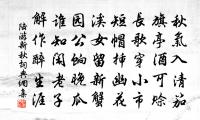 秋氣入清笳
旗亭酒可賒
長歌穿小市
短帽插幽花
溪女留新蟹
園公餉晚瓜
誰知閑老子
解作醉生涯
陸游新秋詞典圖集